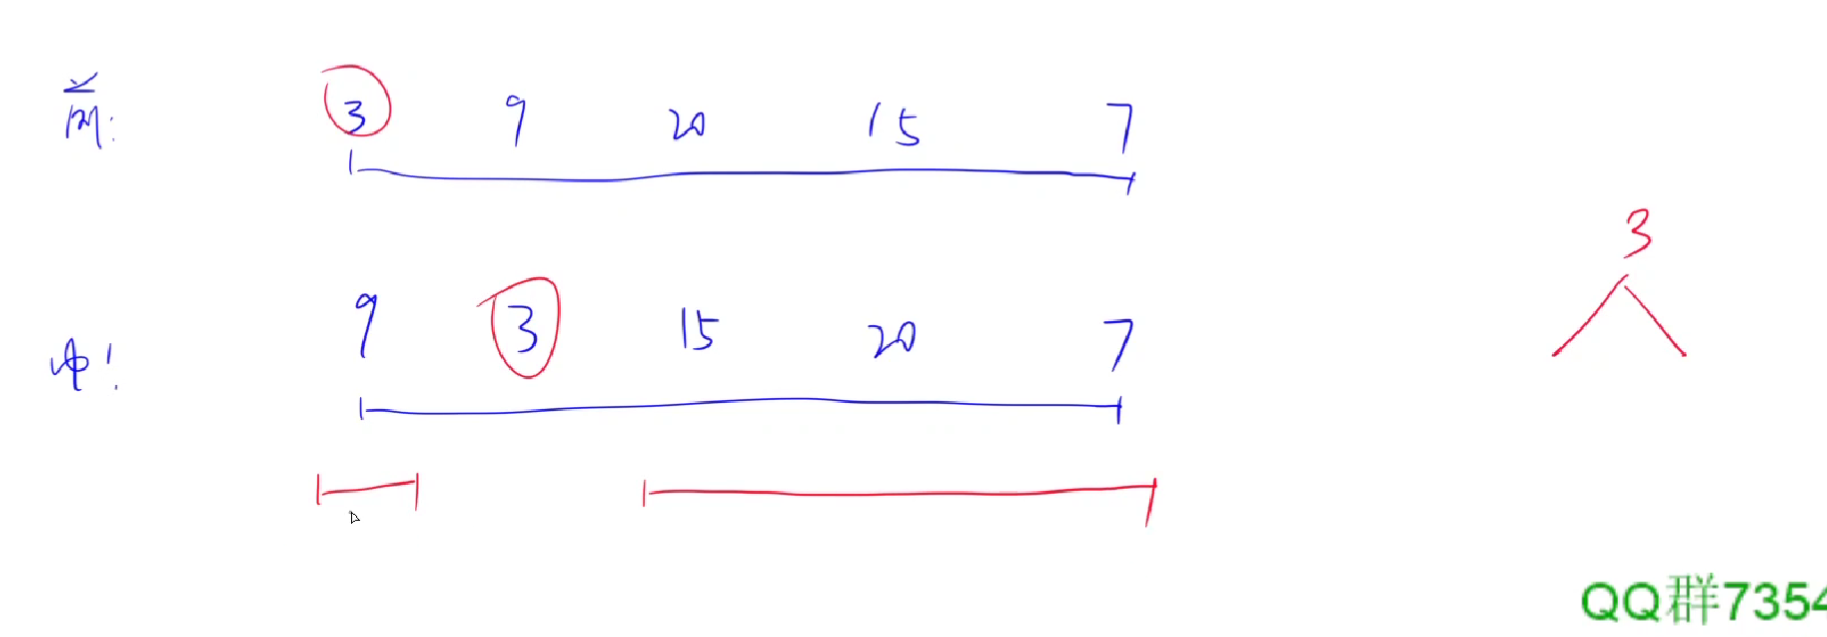 前: 3 9 20 15 7
3
中: 9 3 15 20 7
QQ群7354